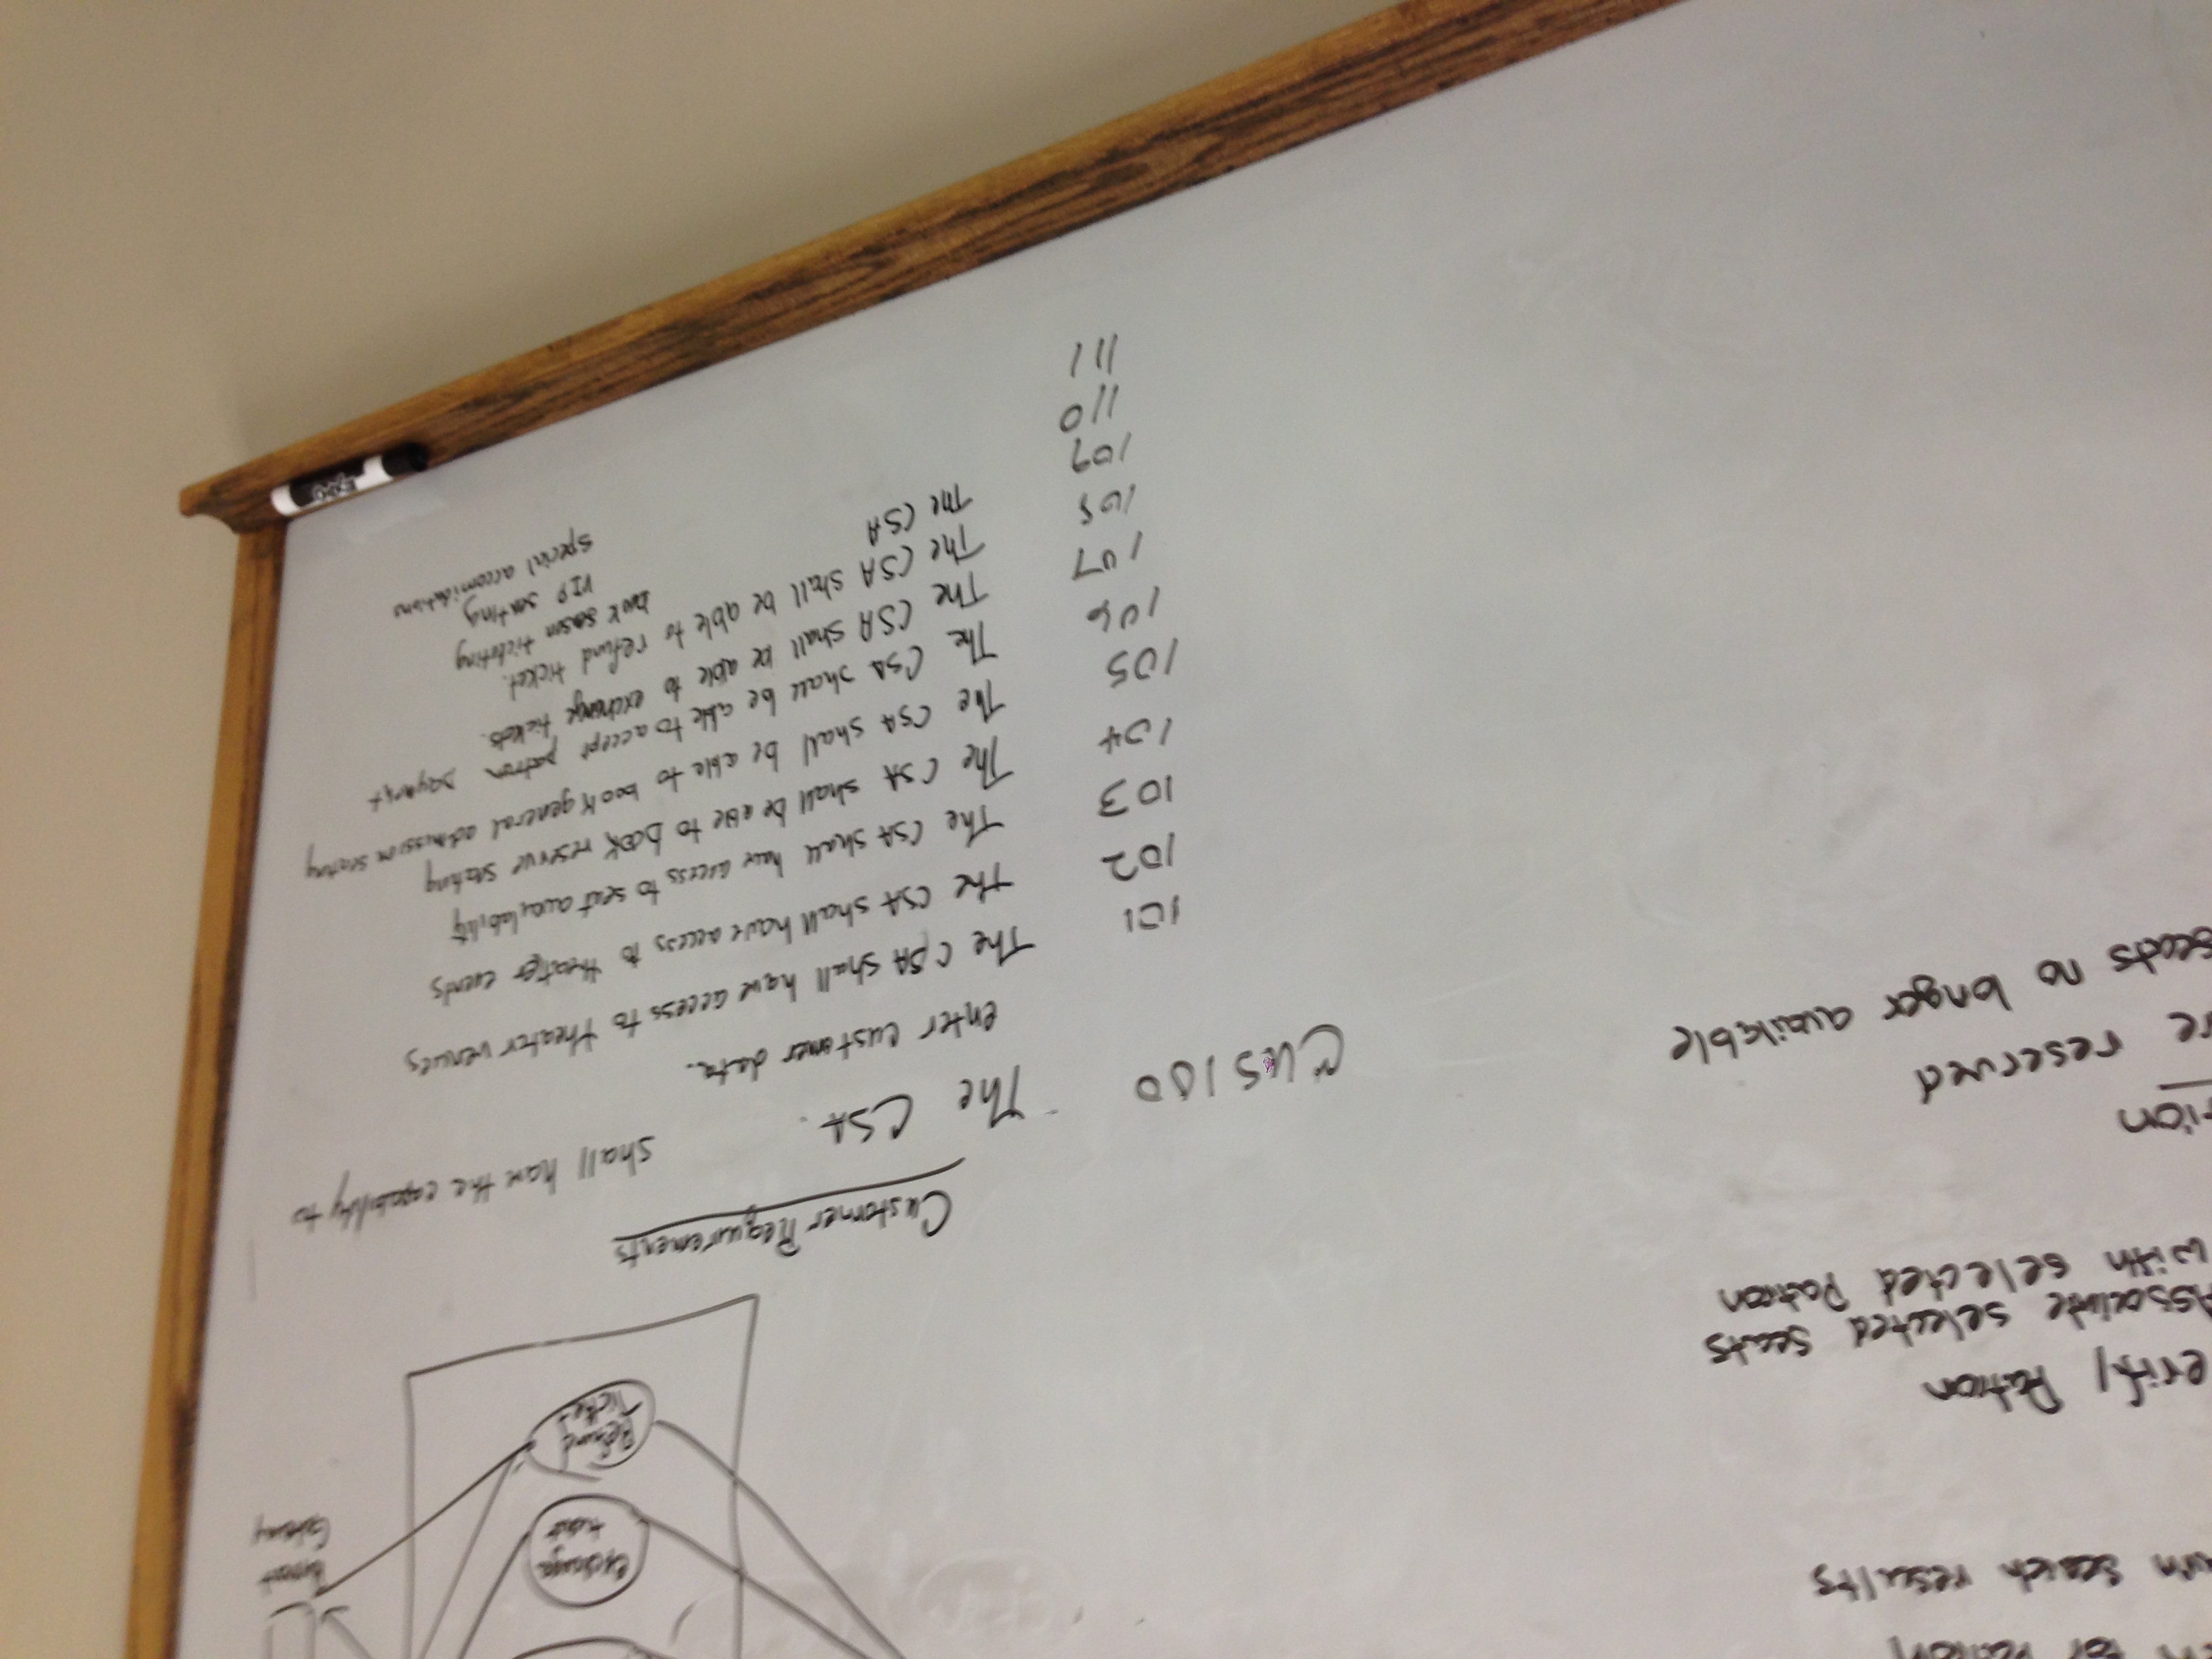 for Patron
search results
erify Patron
Associate selected seats
with selected Patron
tion
re reserved
seats no longer available
exchange
ticket
Refund
Ticket
Gateway
Customer Requirements
CUS100 The CSA. shall have the capability to
enter customer data.
101 The CSA shall have access to theater venues
102 The CSA shall have access to theater events
103 The CSA shall have access to seat availability
104 The CSA shall be able to book reserve seating
105 The CSA shall be able to book general admission seating
106 The CSA shall be able to accept patron payment
107 The CSA shall be able to exchange tickets.
108 The CSA shall be able to refund ticket.
109 The CSA book season ticketing
110 VIP seating
111 special accomidations
EXPO